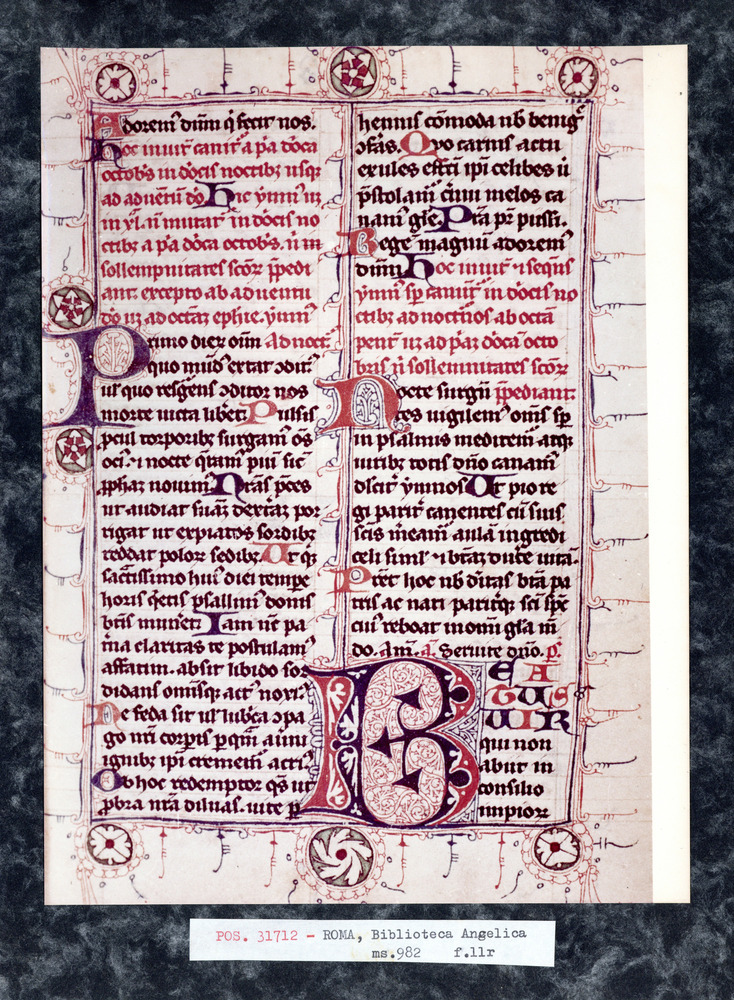 Adorem᷑ dūm q̇ fecit nos.
Hoc inuit᷑ canit᷑ a p̄a d̄oca
octob᷑s in d̄ocis noctib; usq;
ad aduētū dō. Hic ymn᷑
ctib; a p̄a d̄oca octob᷑s.
sollempnitates scōꝝ p̄pedi
ant: excepto ab aduentu
Primo dieꝝ oīm Ad noct᷑.
quo mūd᷑ extat ɔdit᷑
uƚ quo resḡēs ɔditor nos
morte uicta liƀet: Pulsis
pcul torporib; surgam᷑ ōs
oci᷑ ⁊ nocte q̄ram᷑ piū sic᷑
ꝓphaꝫ nouim᷑ Nr̄as p̄ces
ut audiat suāꝫ dextāꝫ por
rigat ut expiatos sordib;
reddat poloꝝ sedib; Ut q̇sq;
sac̄tissimo hui᷑ diei tempe
horis q̇etis psallim᷑ donis
bt̄is mun̄et: Iam nc̄ pa
t̄na claritas te postulam᷑
affatim. absit libido sor
didans omīsq; act᷑ noxi᷑.
Ne feda sit uƚ lub̄ica ɔpa
go nr̄i corp̄is p q̄m auīni
ignib; ipi cremem᷑ acri᷑
Ob hoc redemptor q̄s ut
ꝓbra nr̄a diluas. uite p
hennis cōmoda nƀ benig᷑
ɔf̄as. Quo carnis actu
exules eff̄ci ip̄i celibes ū
p̄stolam᷑ c̄nui melos ca
nam᷑ gl̄ie. P̄ta pr̄ pissi.
Rege᷑ magnū adorem᷑
dūm Hoc inuit᷑ ⁊ seq̄ns
ymn᷑ sp̄ canūt᷑ in d̄ocis no
ctib; ad noct᷑nos ab octā
octo
br̄is n̄ sollennitates scōꝝ
Nocte surgn̄ p̄pediant:
tes uigilem᷑ om̄s sp̄
in psalmis meditem᷑ atq;
uirib; totis dn̄o canam᷑
dlcit᷑ ymnos Ut pio re
gi parit᷑ canentes cū suis
scīs m̄eam᷑ aulā ingredi
celi simƚ ⁊ bt̄aꝫ duc̄e uitā.
P̄tet hoc nƀ d̄itas bt̄a pa
tris ac nati paritq; sci sp̄c
cui᷑ reboat in omī gl̄a m̄
do. Am̄. ā. Seruite dn̄o. p̄.
BEATUS UIR
qui non
abiit in
consilio
impioꝝ
POS. 31712 - ROMA, Biblioteca Angelica
ms.982 f.11r